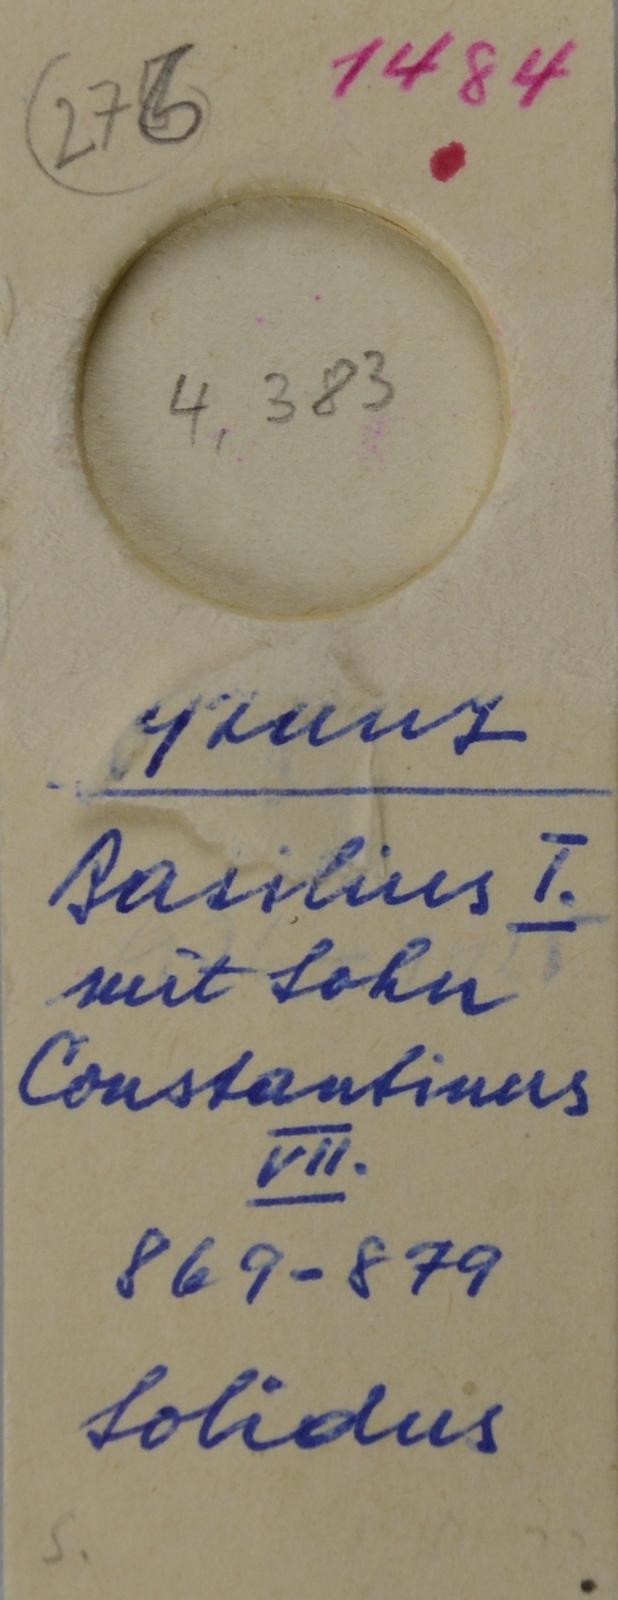 276 1484
4,383
yzanz
Basilius I.
mit Sohn
Constantinus
VII.
869-879
Solidus
S.